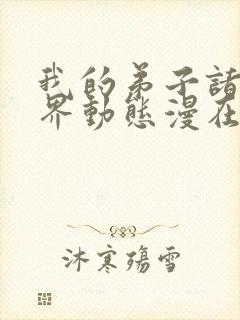 我的弟子諸
界動態漫在
沐寒殤雪